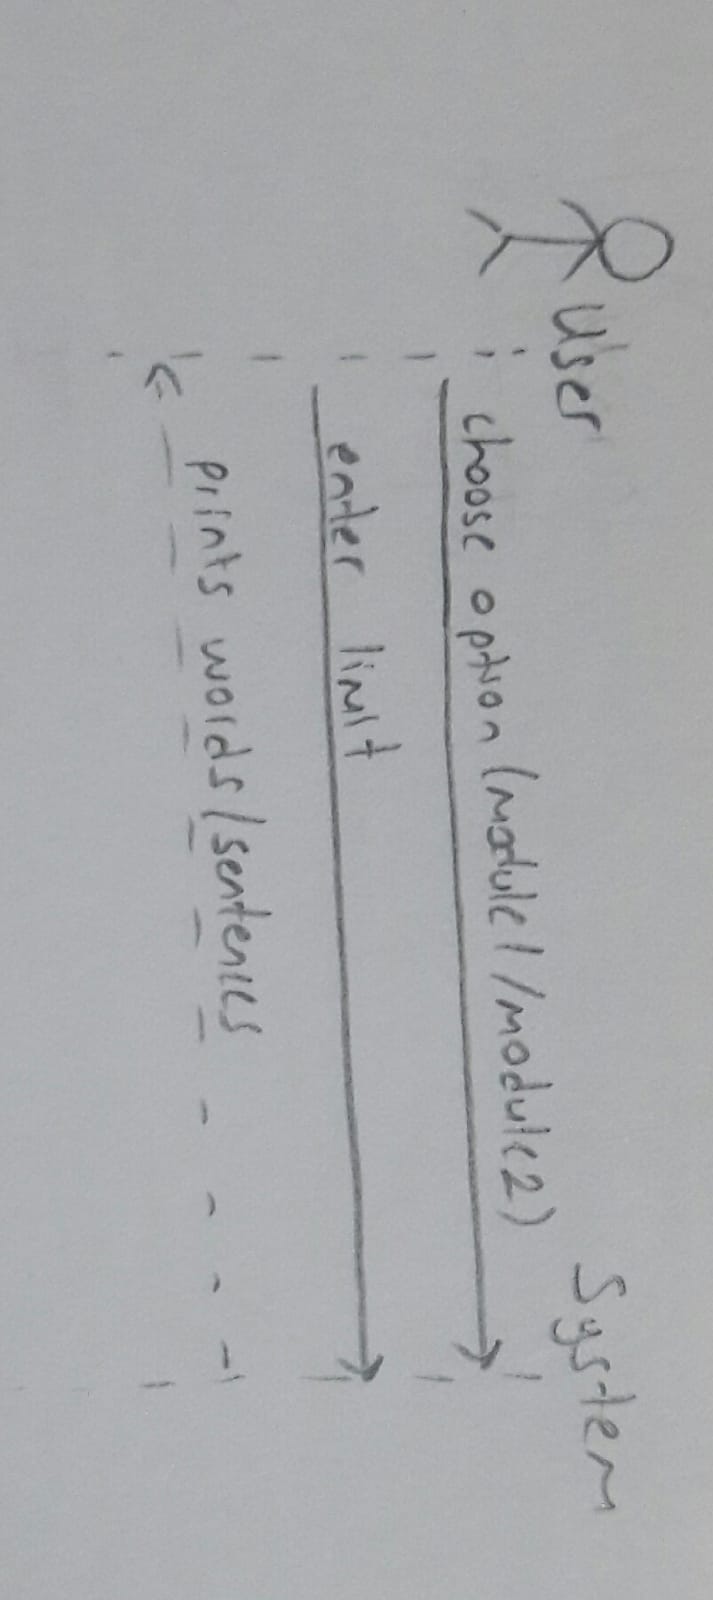 User
System
choose option (module1/module2)
enter limit
prints words/sentences